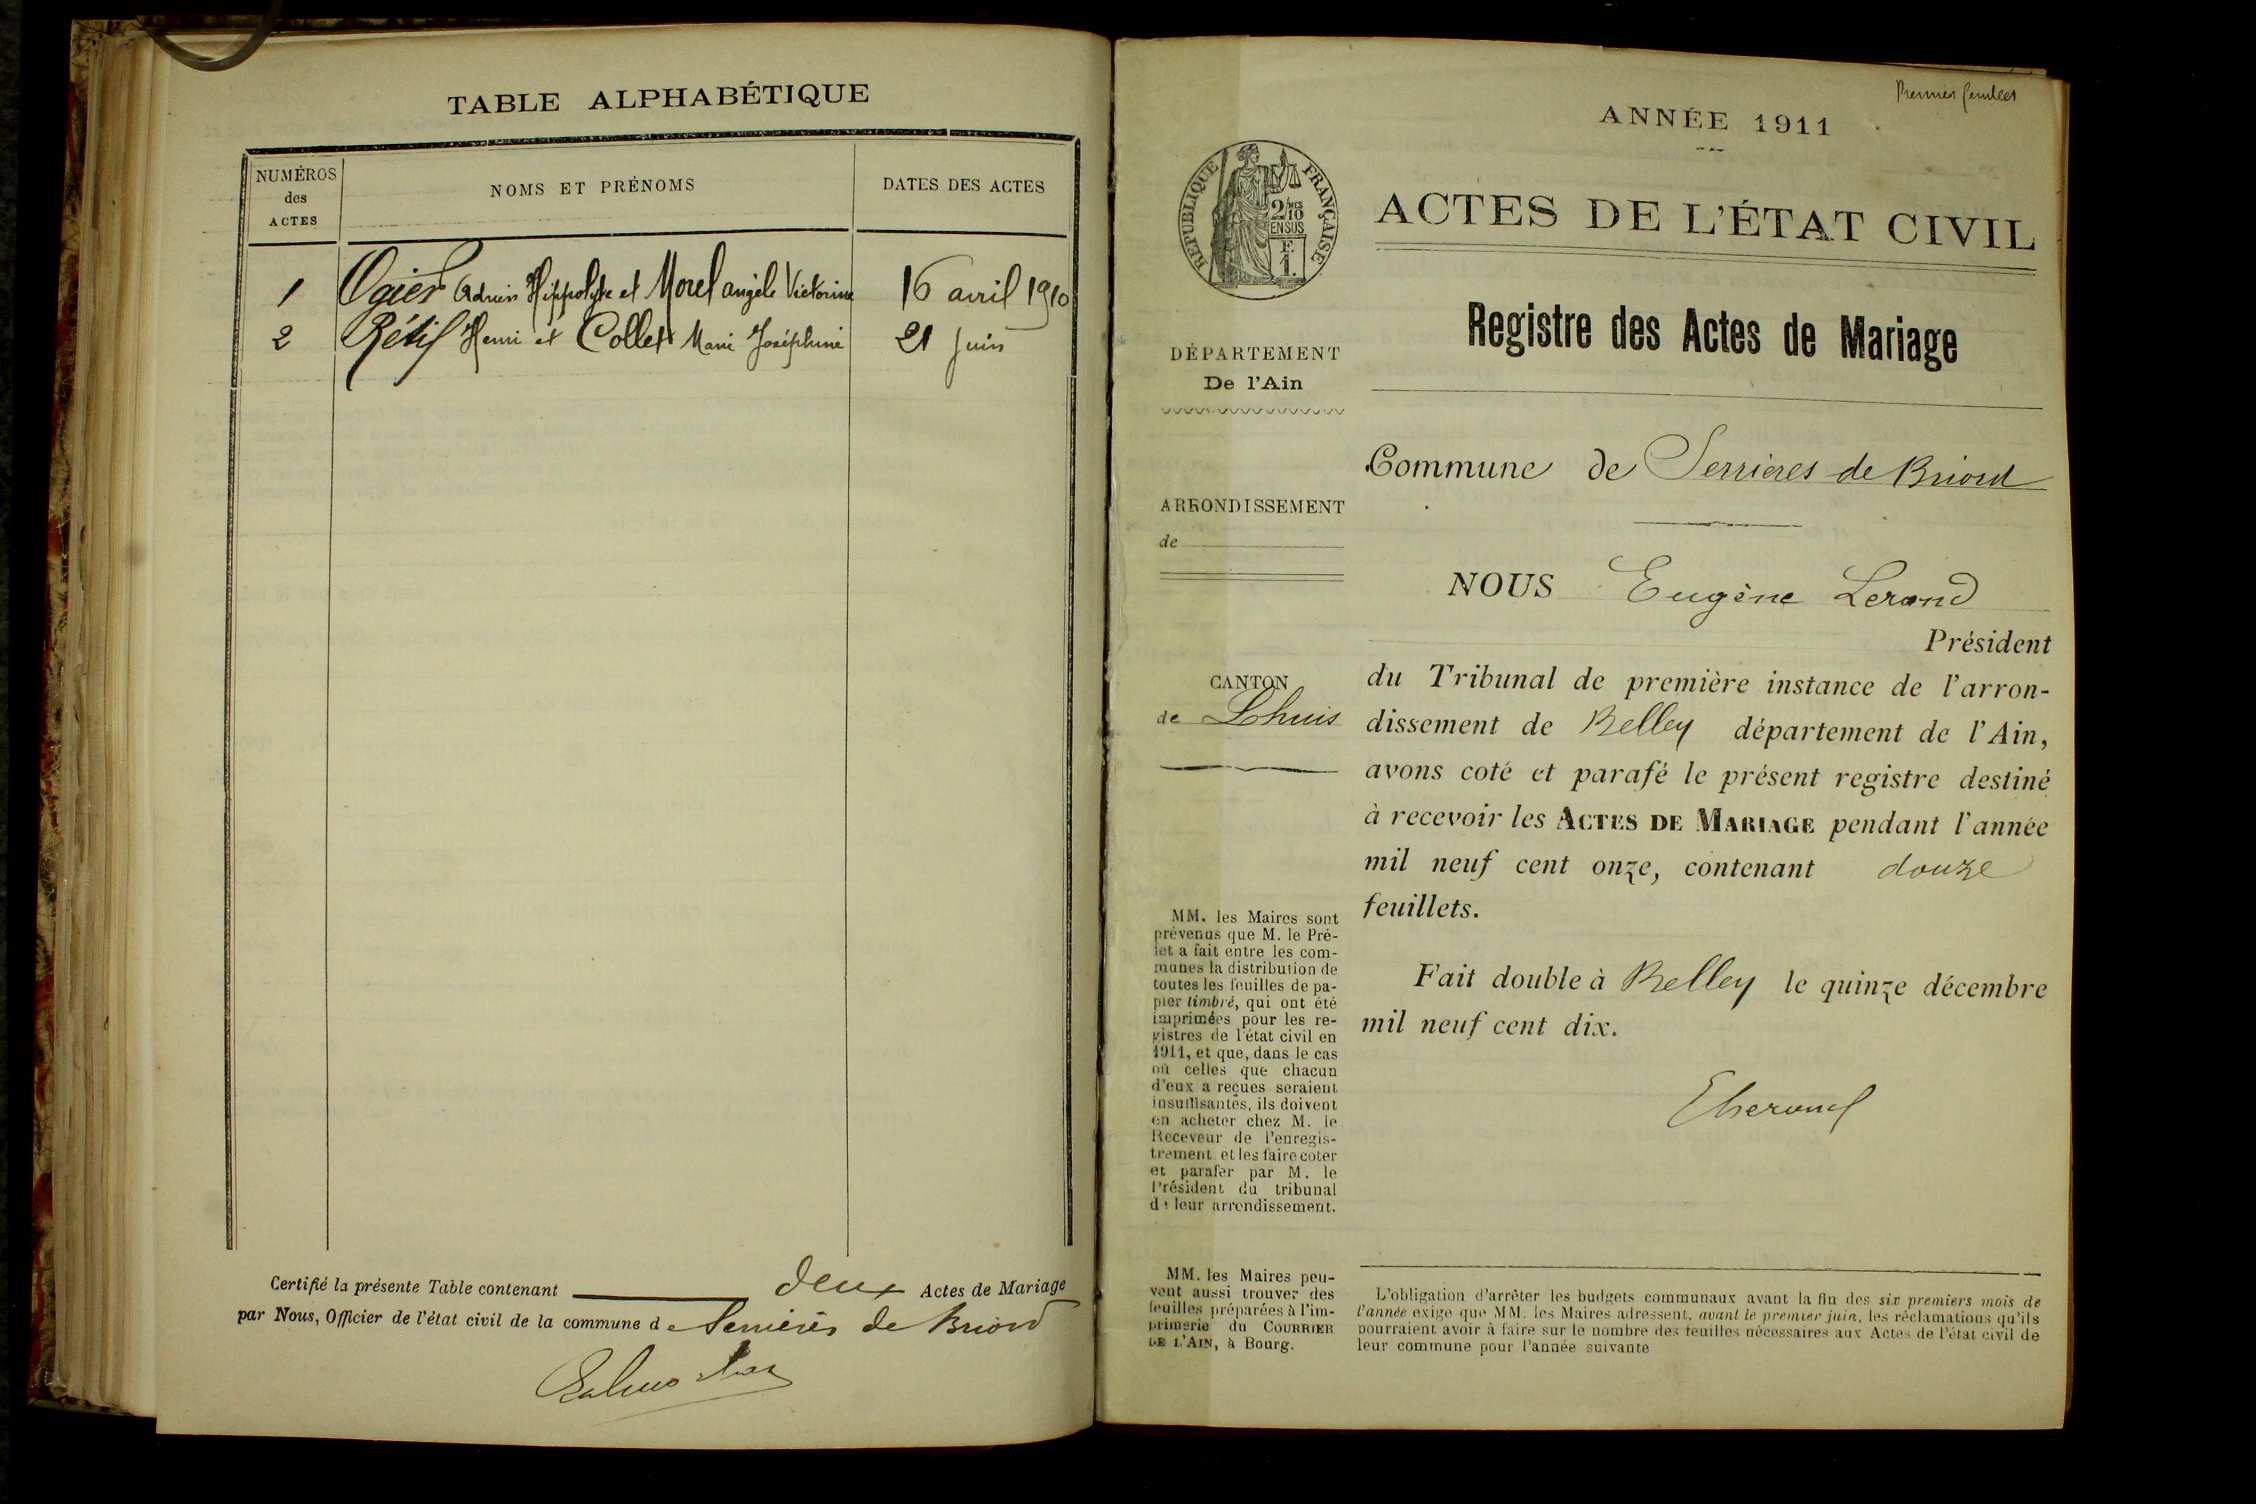 TABLE ALPHABÉTIQUE
NUMÉROS
des
ACTES
NOMS ET PRÉNOMS
DATES DES ACTES
1 Ogier Adrien Hippolyte et Morel angèle Victorine 16 avril 1910
2 Rétif Henri et Collet Marie Joséphine 21 juin
Certifié la présente Table contenant deux Actes de Mariage
par Nous, Officier de l'état civil de la commune de Serrières de Briord
Premier feuillet
ANNÉE 1911
RÉPUBLIQUE FRANÇAISE
2/10 MES
EN SUS
F.
1.
ACTES DE L'ÉTAT CIVIL
Registre des Actes de Mariage
DÉPARTEMENT
De l'Ain
Commune de Serrières de Briord
ARRONDISSEMENT
de
NOUS Eugène Lerond
Président
CANTON
de Lhuis
du Tribunal de première instance de l'arron-
dissement de Belley département de l'Ain,
avons coté et parafé le présent registre destiné
à recevoir les ACTES DE MARIAGE pendant l'année
mil neuf cent onze, contenant douze
feuillets.
Fait double à Belley le quinze décembre
mil neuf cent dix.
MM. les Maires sont
prévenus que M. le Pré-
fet a fait entre les com-
munes la distribution de
toutes les feuilles de pa-
pier timbré, qui ont été
imprimées pour les re-
gistres de l'état civil en
1911, et que, dans le cas
où celles que chacun
d'eux a reçues seraient
insuffisantes, ils doivent
en acheter chez M. le
Receveur de l'enregis-
trement et les faire coter
et parafer par M. le
Président du tribunal
de leur arrondissement.
MM. les Maires peu-
vent aussi trouver des
feuilles préparées à l'im-
primerie du COURRIER
DE L'AIN, à Bourg.
L'obligation d'arrêter les budgets communaux avant la fin des six premiers mois de
l'année exige que MM. les Maires adressent, avant le premier juin, les réclamations qu'ils
pourraient avoir à faire sur le nombre des feuilles nécessaires aux Actes de l'état civil de
leur commune pour l'année suivante